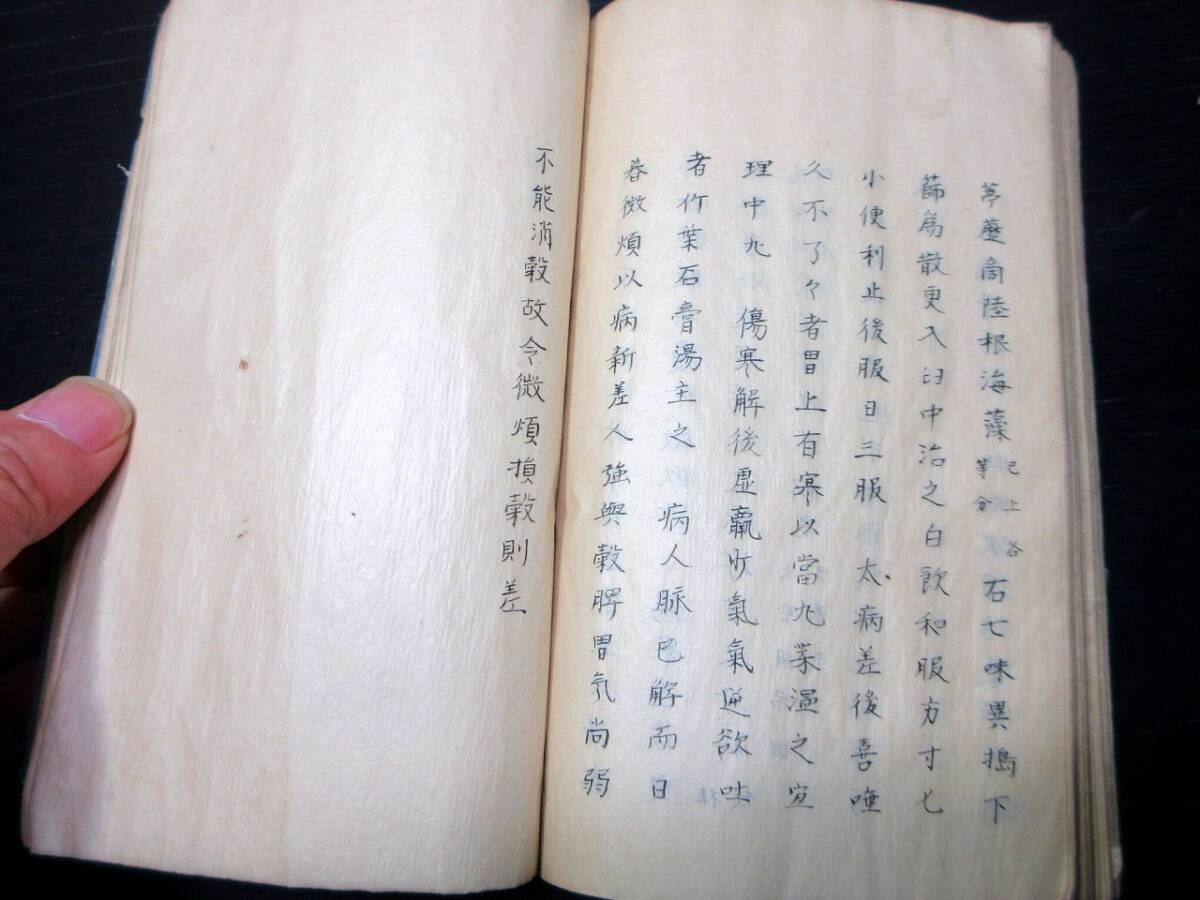 葶藶商陸根海藻已上各等分右七味異搗下
篩為散更入臼中治之白飲和服方寸匕
小便利止後服日三服 太病差後喜唾
久不了々者胃上有寒以當丸藥温之宜
理中丸 傷寒解後虚羸少氣氣逆欲吐
者竹葉石膏湯主之 病人脉已解而日
暮微煩以病新差人強與穀脾胃氣尚弱
不能消穀故令微煩損穀則差